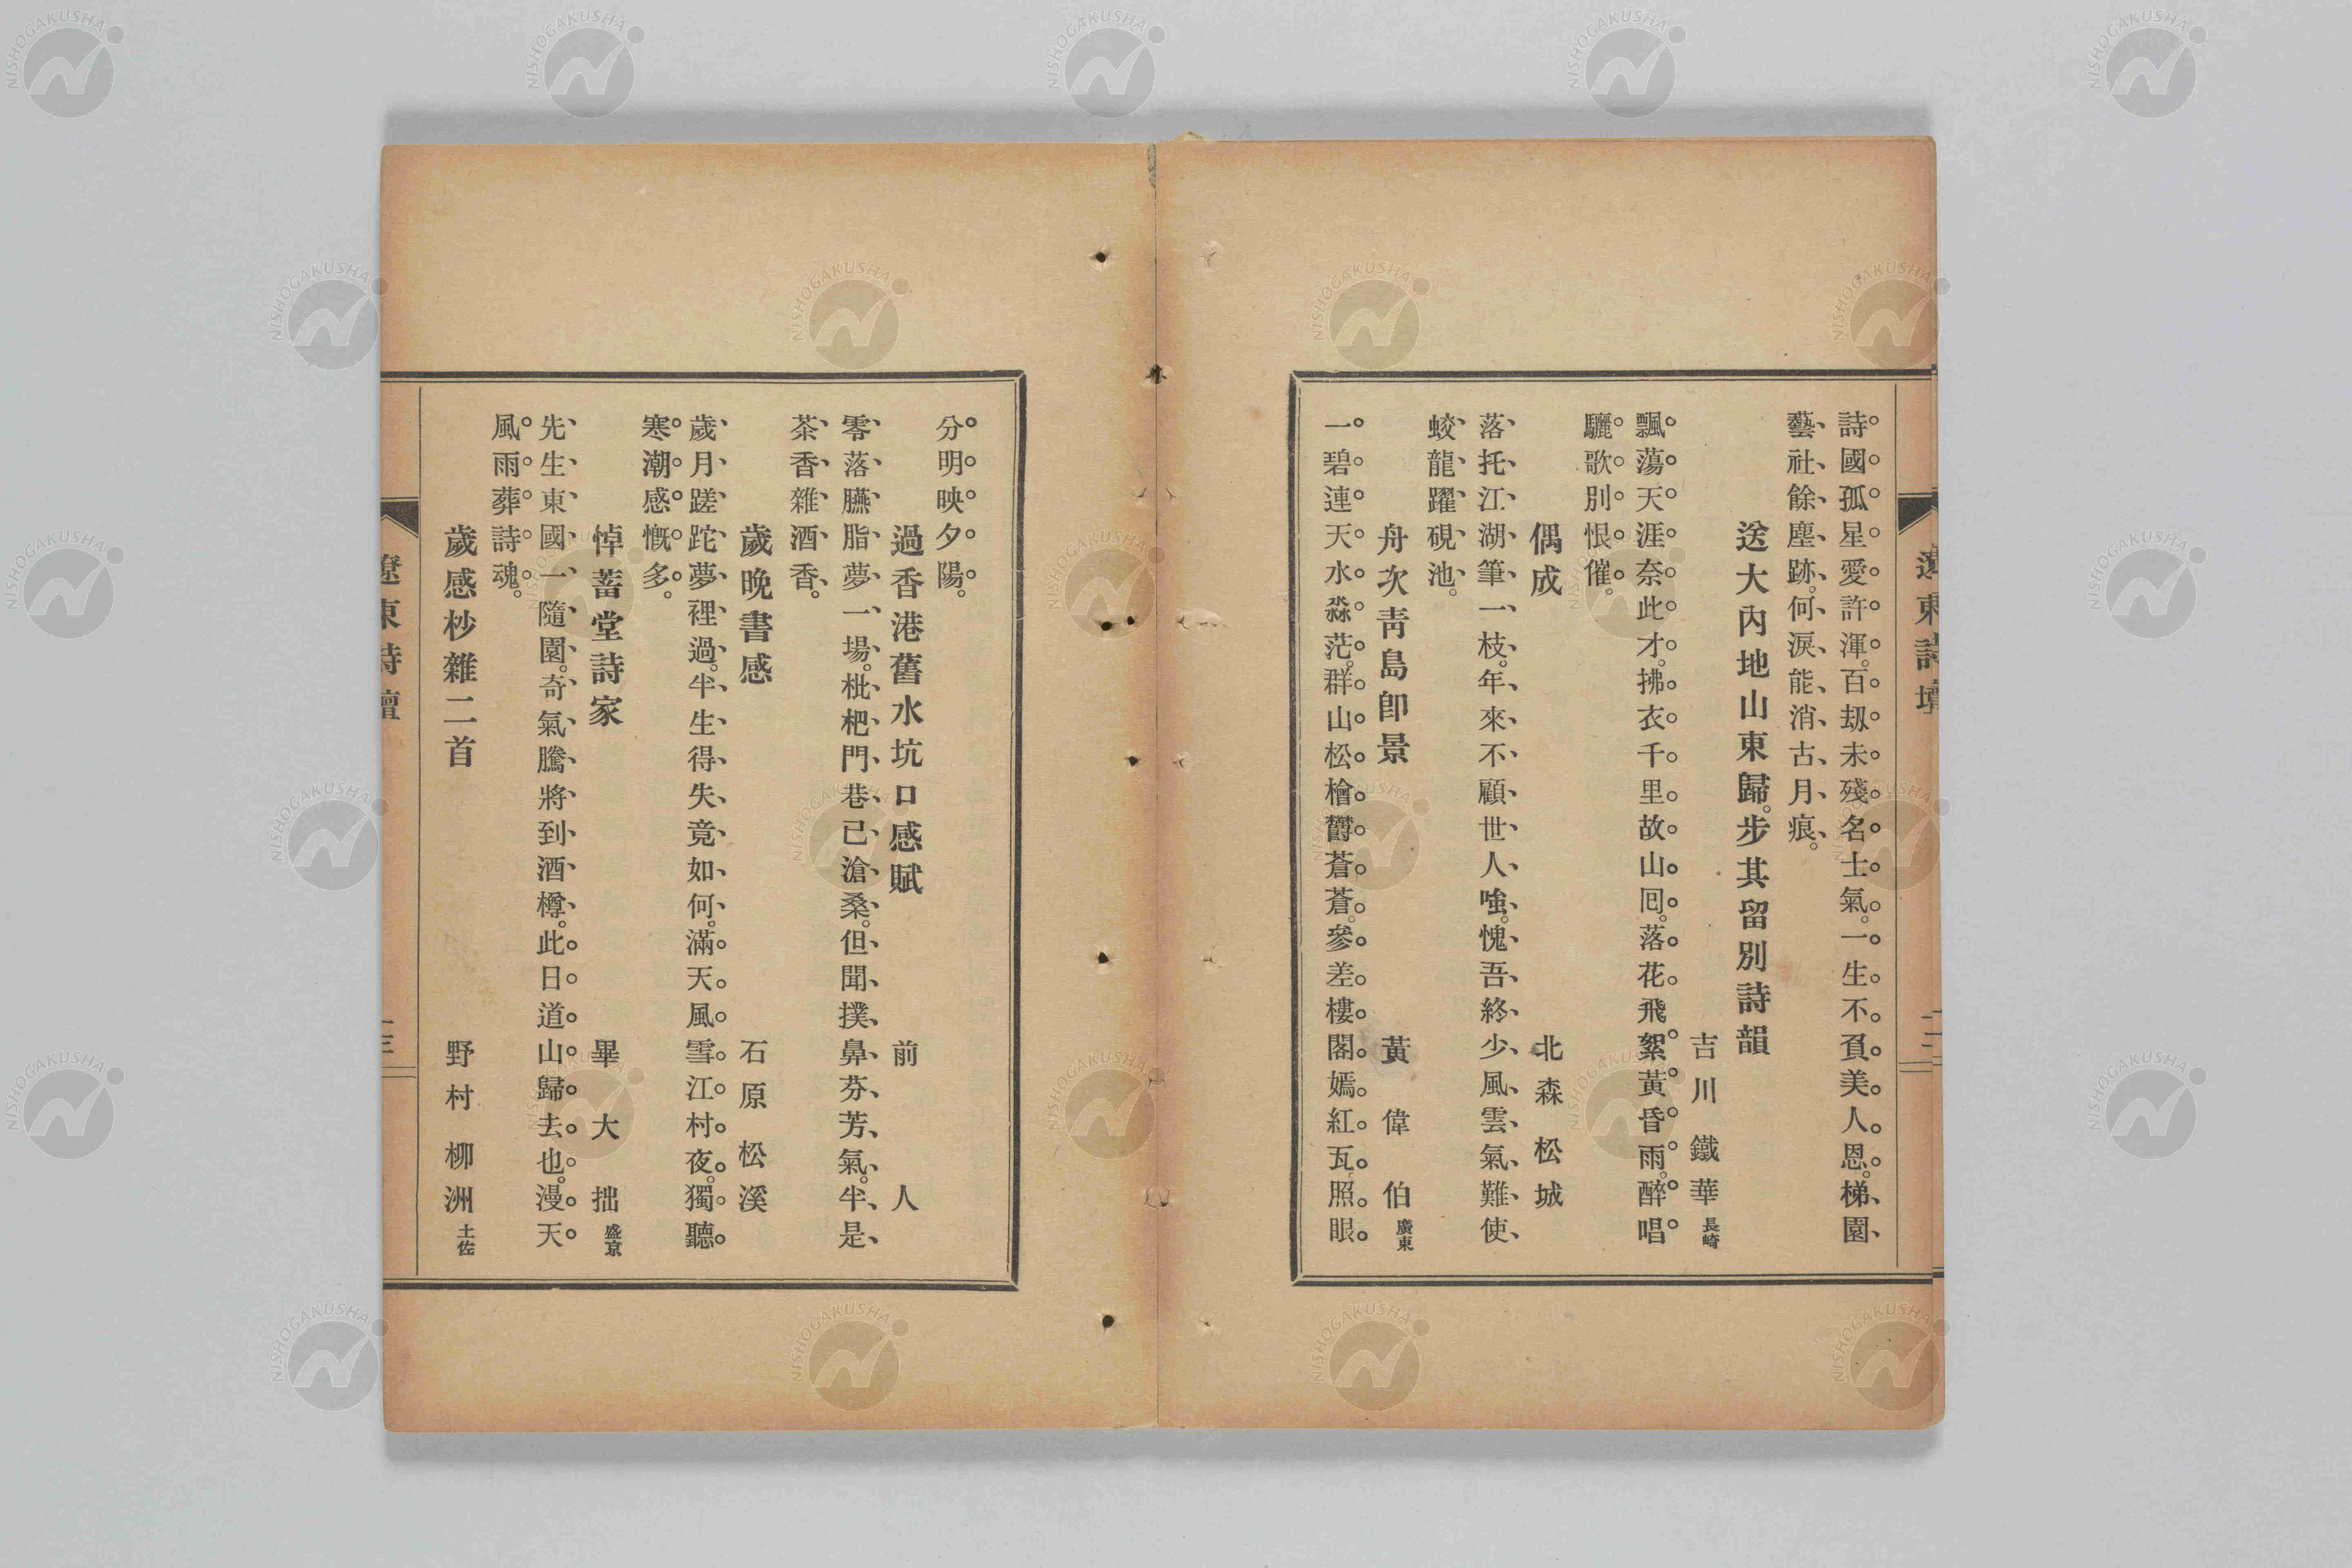 遼東詩壇
詩國孤星愛許渾。百劫未殘名士氣。一生不負美人恩。梯園
藝社餘塵跡。何淚能消古月痕。
送大內地山東歸。步其留別詩韻
吉川鐵華 長崎
飄蕩天涯奈此才。拂衣千里故山囘。落花飛絮黃昏雨。醉唱
驪歌別恨催。
偶成 北森松城
落托江湖筆一枝。年來不顧世人嗤。愧吾終少風雲氣。難使
蛟龍躍硯池。
舟次靑島卽景 黃偉伯 廣東
一碧連天水淼茫。群山松檜欝蒼蒼。參差樓閣嫣紅瓦。照眼
分明映夕陽。
過香港舊水坑口感賦 前人
零落臙脂夢一場。枇杷門巷已滄桑。但聞撲鼻芬芳氣。半是
茶香雜酒香。
歲晚書感 石原松溪
歲月蹉跎夢裡過。半生得失竟如何。滿天風雪江村夜。獨聽
寒潮感慨多。
悼蓄堂詩家 畢大拙 盛京
先生東國一隨園。奇氣騰將到酒樽。此日道山歸去也。漫天
風雨葬詩魂。
歲感杪雜二首 野村柳洲 土佐
遼東詩壇
NISHOGAKUSHA